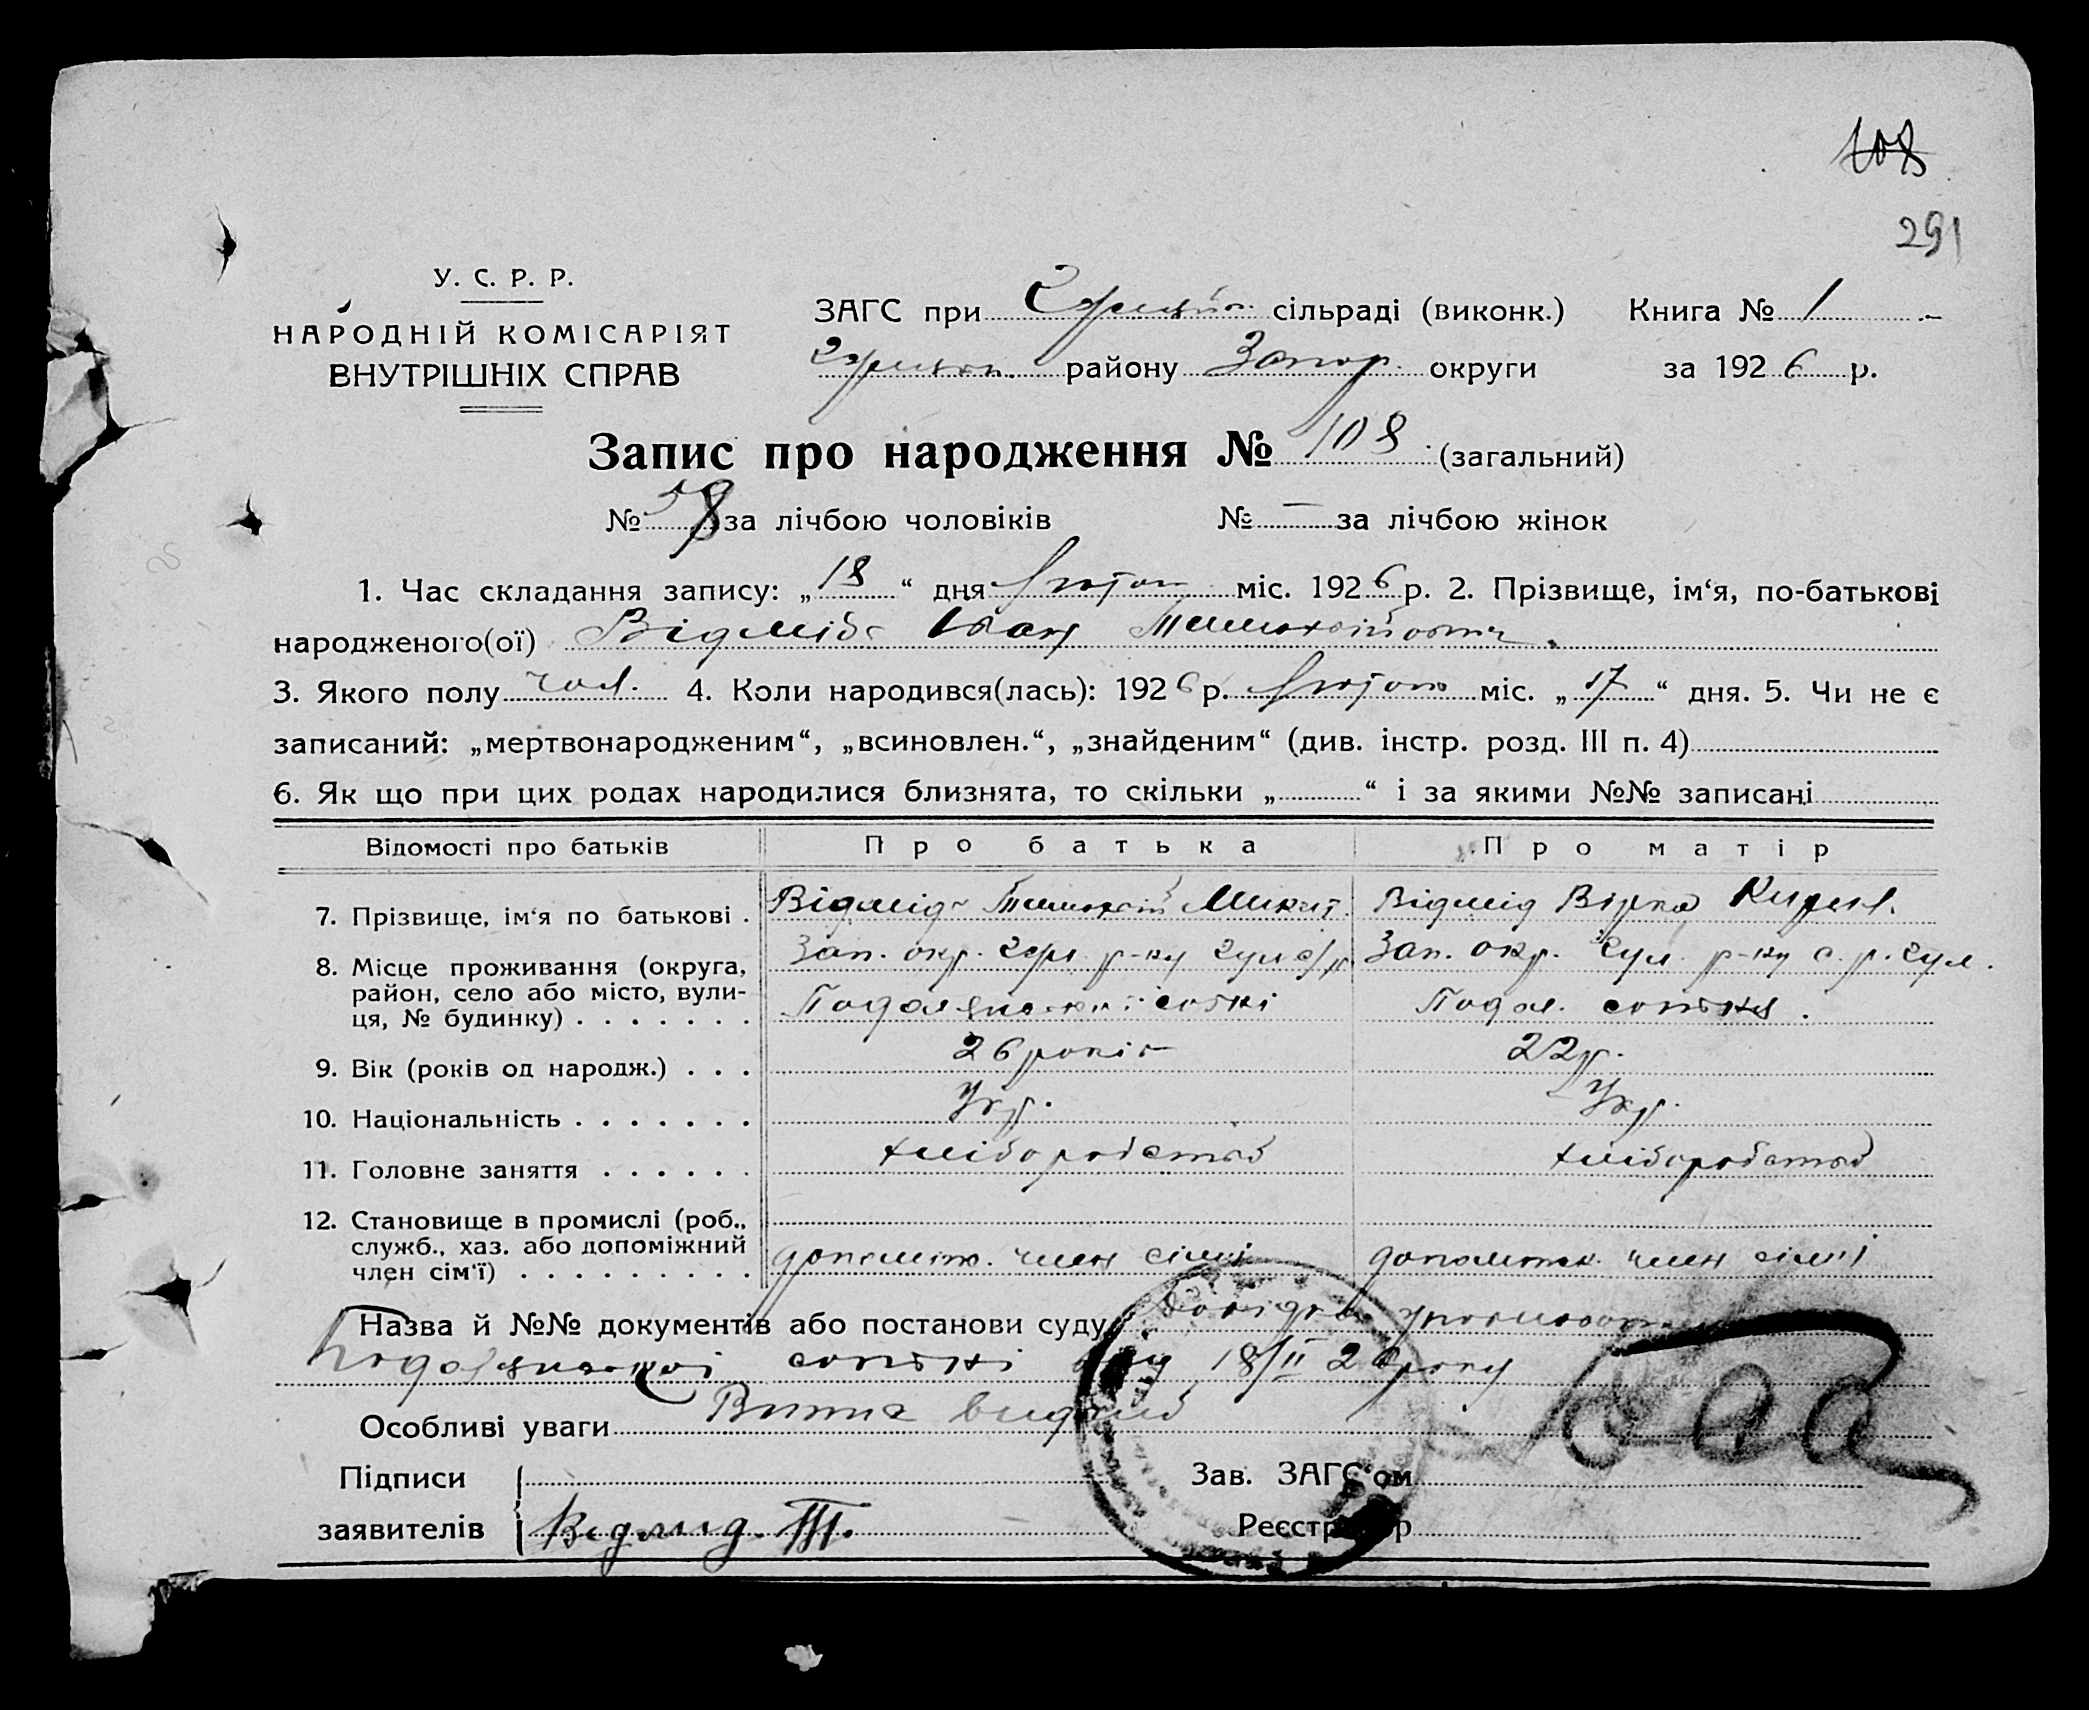 108
291
У. С. Р. Р.
НАРОДНІЙ КОМІСАРІЯТ
ВНУТРІШНІХ СПРАВ
ЗАГС при сільраді (виконк.) Книга № 1
району Запор. округи за 1926 р.
Запис про народження № 108 (загальний)
№ 58 за лічбою чоловіків № — за лічбою жінок
1. Час складання запису: „18“ дня лютого міс. 1926 р. 2. Прізвище, ім‘я, по-батькові
народженого(ої) Відмідь Іван Тимохвійович.
3. Якого полу чол. 4. Коли народився(лась): 1926 р. лютого міс. „17“ дня. 5. Чи не є
записаний: „мертвонародженим“, „всиновлен.“, „знайденим“ (див. інстр. розд. III п. 4)
6. Як що при цих родах народилися близнята, то скільки „ “ і за якими №№ записані
Відомості про батьків Про батька Про матір
7. Прізвище, ім‘я по батькові . Відмідь Тимохвій Микит. Відмід Вірка Кирил.
8. Місце проживання (округа, Зап. окр. р-ку Гул с/р Зап. окр. Гул. р-ку с. р. Гул.
район, село або місто, вули-
ця, № будинку) . . . . . . . Подолянської сотні Подол. сотня.
9. Вік (років од народж.) . . . 26 років 22 р.
10. Національність . . . . . . . Укр. Укр.
11. Головне заняття . . . . . . хліборобство хліборобство
12. Становище в промислі (роб.,
служб., хаз. або допоміжний
член сім‘ї) . . . . . . . . . допоміж. член сімї допоміжн. член сім'ї
Назва й №№ документів або постанови суду Довідка уповноваж.
Подолянської сотні від 18/II 26 року
Особливі уваги Витяг видано
Підписи Зав. ЗАГС‘ом
заявителів Відмид. Т. Реєстратор